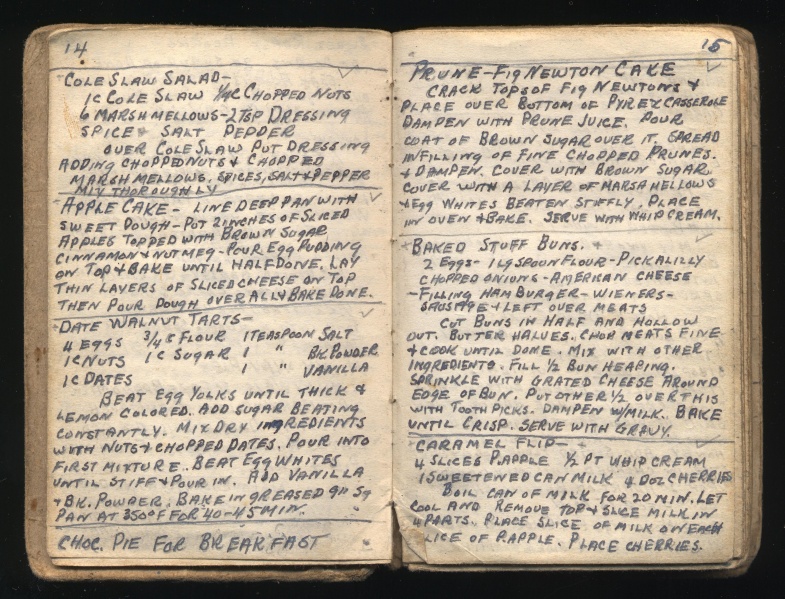 14
COLE SLAW SALAD-
1C COLE SLAW 1/4C CHOPPED NUTS
6 MARSHMELLOWS-2TSP DRESSING
SPICE & SALT PEPPER
OVER COLE SLAW PUT DRESSING
ADDING CHOPPED NUTS & CHOPPED
MARSHMELLOWS. SPICES, SALT & PEPPER
MIX THOROUGHLY
APPLE CAKE- LINE DEEP PAN WITH
SWEET DOUGH-PUT 2 INCHES OF SLICED
APPLES TOPPED WITH BROWN SUGAR
CINNAMON & NUTMEG-POUR EGG PUDDING
ON TOP & BAKE UNTIL HALF DONE. LAY
THIN LAYERS OF SLICED CHEESE ON TOP
THEN POUR DOUGH OVER ALL & BAKE DONE.
DATE WALNUT TARTS-
4 EGGS 3/4 C FLOUR 1 TEASPOON SALT
1C NUTS 1C SUGAR 1 " BK. POWDER
1C DATES 1 " VANILLA
BEAT EGG YOLKS UNTIL THICK &
LEMON COLORED. ADD SUGAR BEATING
CONSTANTLY. MIX DRY INGREDIENTS
WITH NUTS & CHOPPED DATES. POUR INTO
FIRST MIXTURE. BEAT EGG WHITES
UNTIL STIFF & POUR IN. ADD VANILLA
& BK. POWDER. BAKE IN GREASED 9" SQ
PAN AT 350°F FOR 40-45 MIN.
CHOC. PIE FOR BREAKFAST
15
PRUNE-FIG NEWTON CAKE
CRACK TOPS OF FIG NEWTONS &
PLACE OVER BOTTOM OF PYREX CASSEROLE
DAMPEN WITH PRUNE JUICE. POUR
COAT OF BROWN SUGAR OVER IT. SPREAD
IN FILLING OF FINE CHOPPED PRUNES.
& DAMPEN. COVER WITH BROWN SUGAR.
COVER WITH A LAYER OF MARSHMELLOWS
& EGG WHITES BEATEN STIFFLY. PLACE
IN OVEN & BAKE. SERVE WITH WHIP CREAM.
BAKED STUFF BUNS.
2 EGGS- 1 LG SPOON FLOUR-PICKALILLY
CHOPPED ONIONS-AMERICAN CHEESE
-FILLING HAMBURGER-WIENERS-
SAUSAGE & LEFT OVER MEATS
CUT BUNS IN HALF AND HOLLOW
OUT. BUTTER HALVES. CHOP MEATS FINE
& COOK UNTIL DONE. MIX WITH OTHER
INGREDIENTS. FILL 1/2 BUN HEAPING.
SPRINKLE WITH GRATED CHEESE AROUND
EDGE OF BUN. PUT OTHER 1/2 OVER THIS
WITH TOOTH PICKS. DAMPEN W/MILK. BAKE
UNTIL CRISP. SERVE WITH GRAVY.
CARAMEL FLIP-
4 SLICES P.APPLE 1/2 PT WHIP CREAM
1 SWEETENED CAN MILK 4 DOZ CHERRIES
BOIL CAN OF MILK FOR 20 MIN. LET
COOL AND REMOVE TOP & SLICE MILK IN
4 PARTS. PLACE SLICE OF MILK ON EACH
SLICE OF P.APPLE. PLACE CHERRIES.